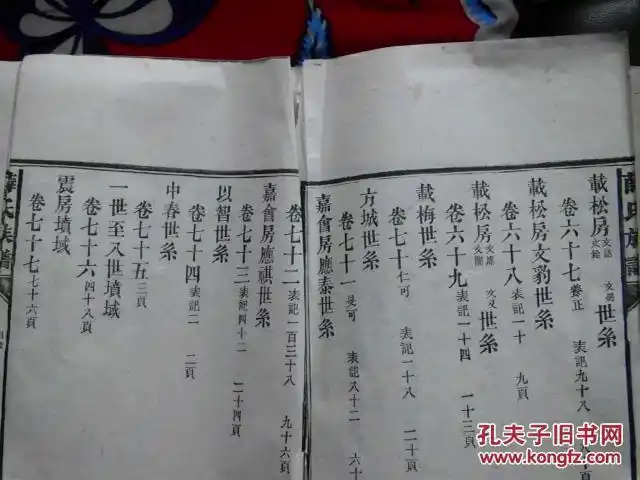 載松房 世系
卷六十七 表記九十八
載松房文豹世系
卷六十八 表記一十 九頁
載松房 世系
卷六十九 表記一十四 一十三頁
載梅世系
卷七十 仁可 表記 二十頁
方城世系
卷七十一 是可 表記八十二 六十
嘉會房應泰世系
卷七十二 表記一百三十八 九十六頁
嘉會房應祺世系
卷七十三 表記四十二 二十四頁
以智世系
卷七十四 表記二 二頁
中春世系
卷七十五 三頁
一世至八世墳域
卷七十六 四十八頁
震房墳域
卷七十七 七十六頁
氏族譜
孔夫子旧书网
www.kongfz.com